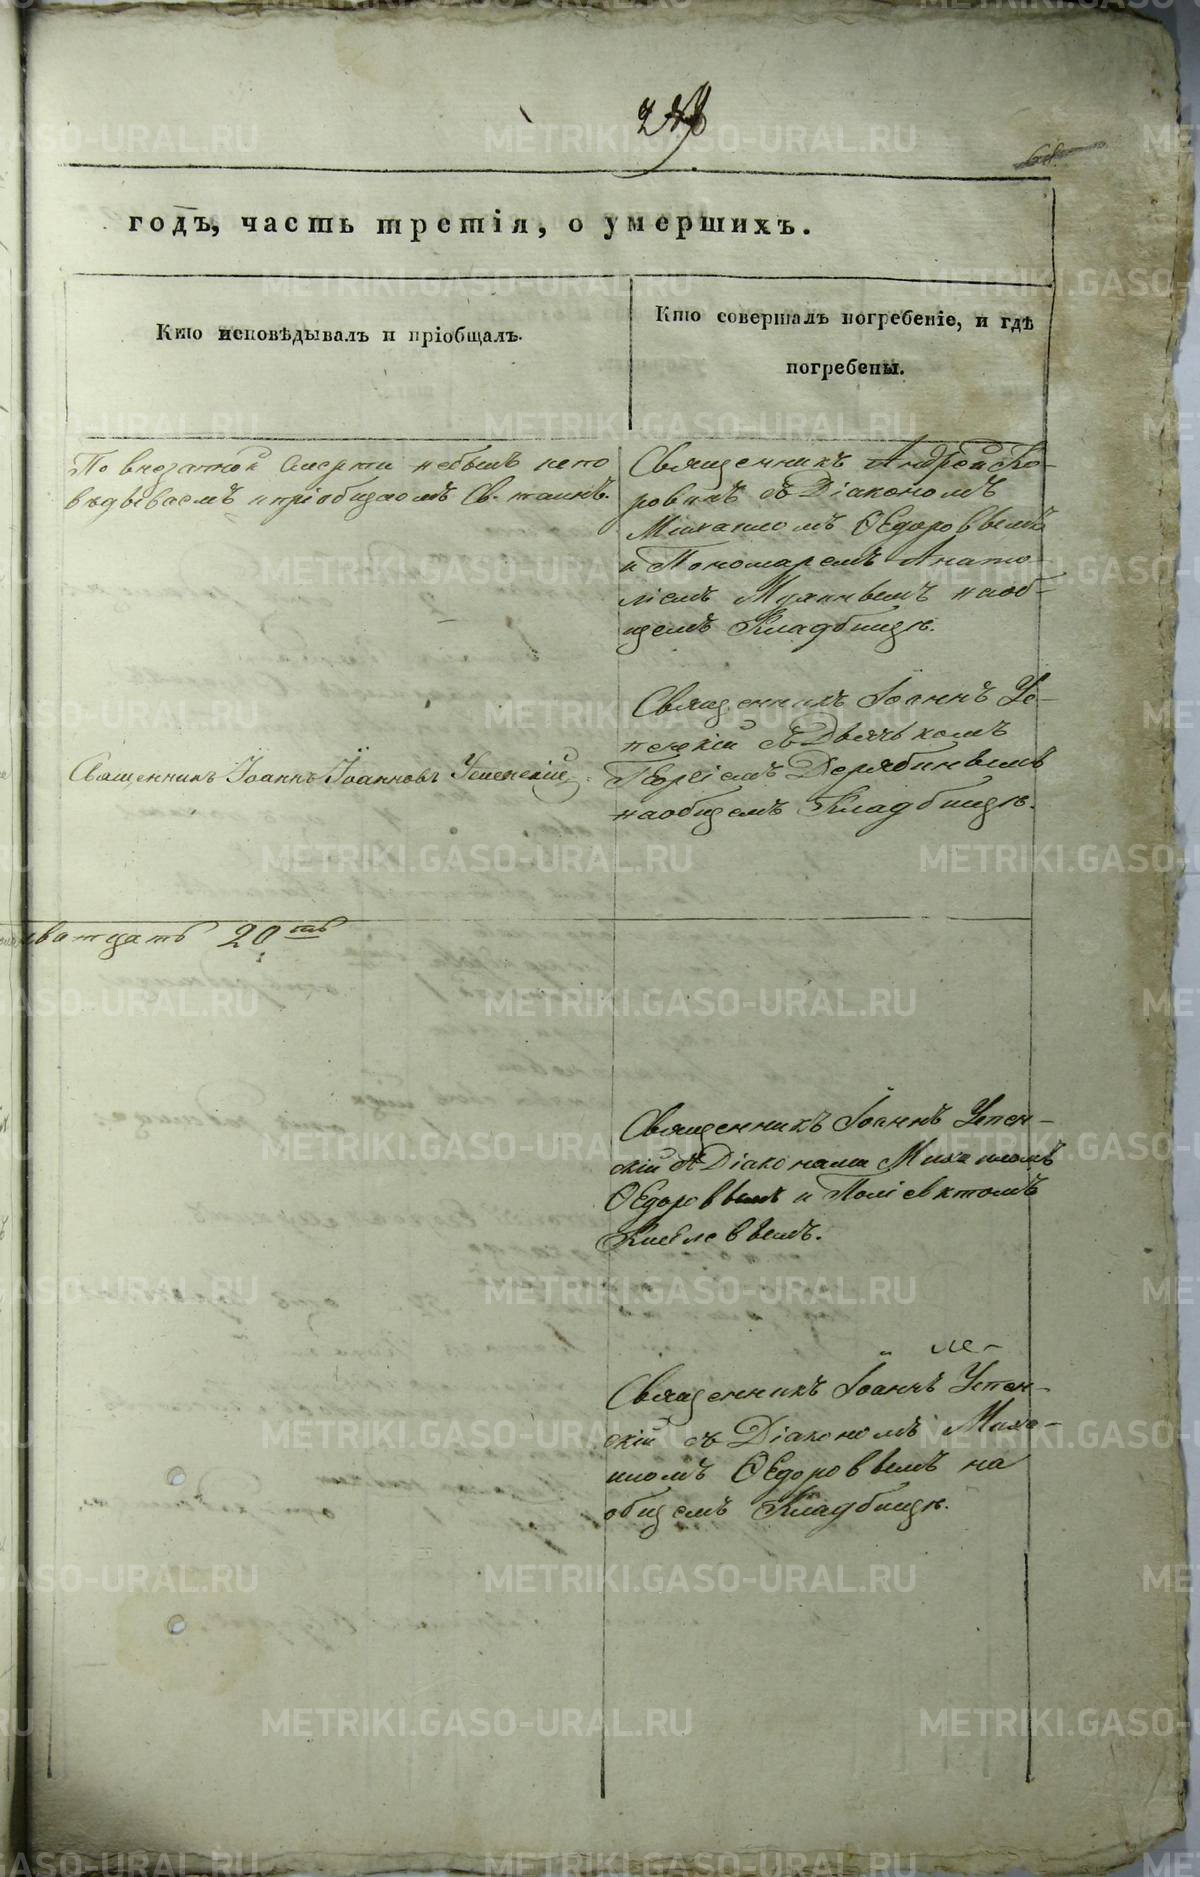 годъ, часть третія, о умершихъ.
Кто исповѣдывалъ и пріобщалъ.
Кто совершалъ погребеніе, и гдѣ
погребены.
По внезапной смерти небылъ испо
вѣдываемъ и пріобщаемъ Св. таинъ.
Священникъ Андрей Ко-
ровинъ съ Діакономъ
Михаиломъ Ѳедоровымъ
и Пономаремъ Анато-
ліемъ наоб-
щемъ Кладбищѣ.
Священникъ Іоаннъ Іоанновъ Успенскій
Священникъ Іоаннъ Ус-
пенскій съ Дьячькомъ
Георгіемъ Дерябинымъ
наобщемъ Кладбищѣ.
дватцать 20ть
Священникъ Іоаннъ Успен-
скій съ Діаконами Михаиломъ
Ѳедоровымъ и Поліевктомъ
Священникъ Іоаннъ Успен-
скій съ Діакономъ Миха-
иломъ Ѳедоровымъ на
общемъ Кладбищѣ.
METRIKI.GASO-URAL.RU